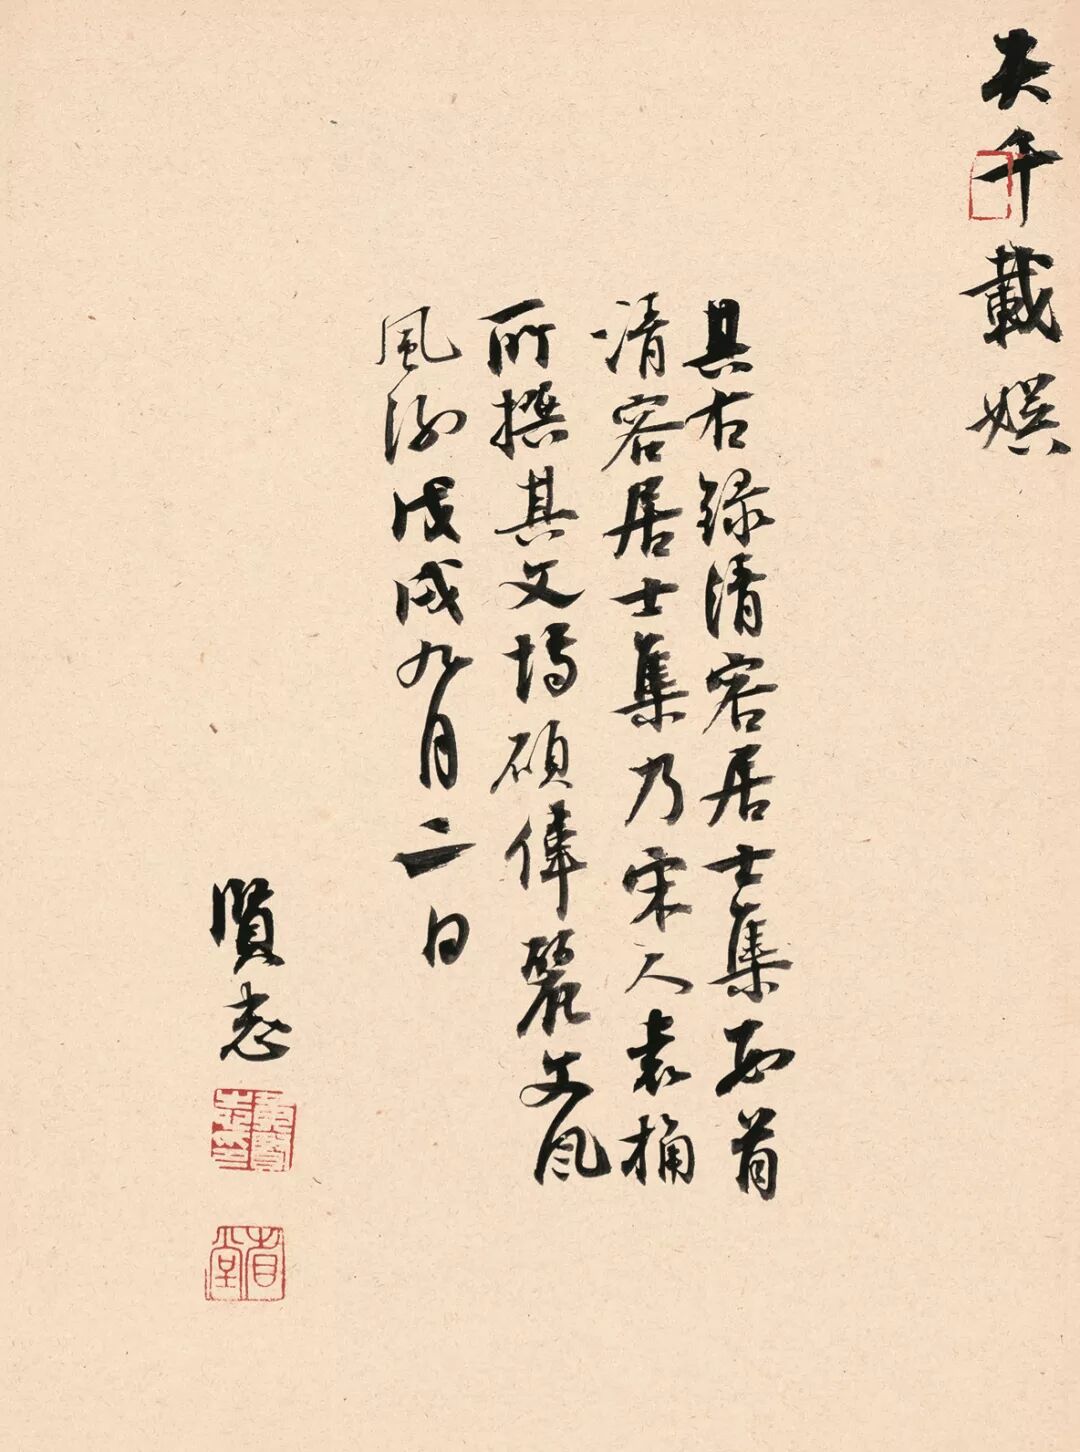 千載娛
具右録清容居士集首
清容居士集乃宋人袁桷
所撰其文博碩偉麗文風
風戊戌九月二日
賢志